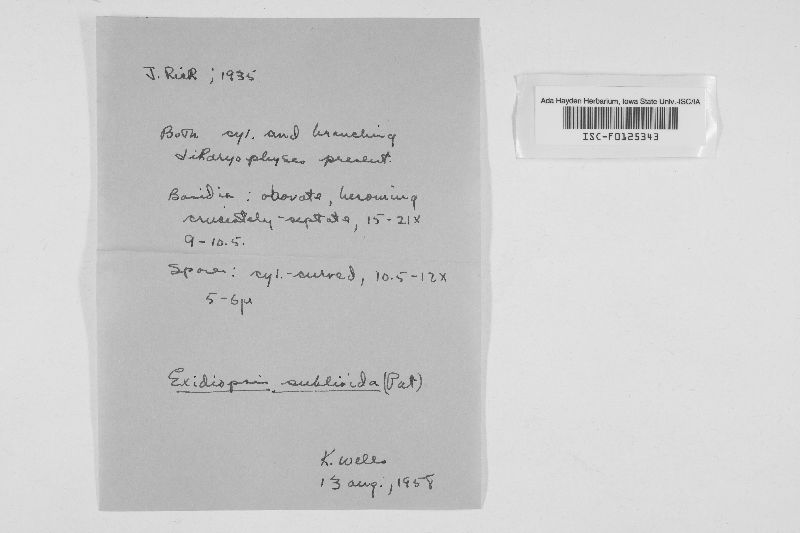 J. Rick ; 1935
Both cyl. and branching
dikaryophyses present.
Basidia : obovate, becoming
cruciately-septate, 15-21x
9-10.5.
Spores : cyl.-curved, 10.5-12x
5-6µ
Exidiopsis sublivida (Pat)
K. Wells
13 aug., 1958
Ada Hayden Herbarium, Iowa State Univ.-ISC/IA
ISC-F0125343